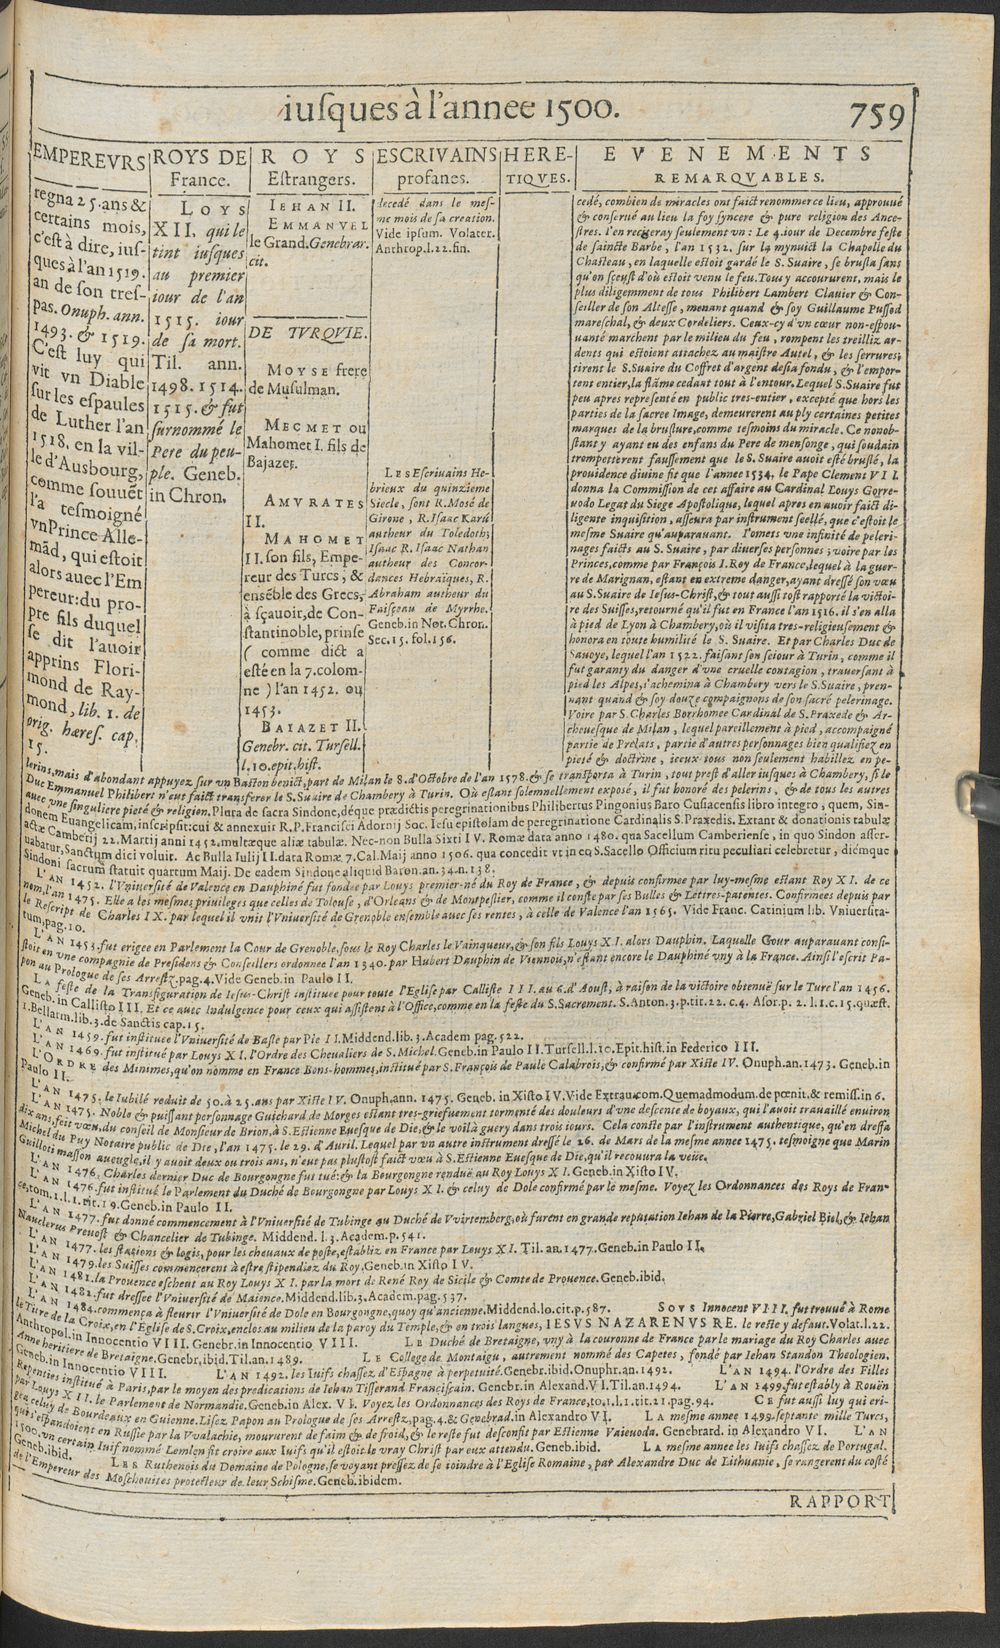 iuſques à l'annee 1500.
759
EMPEREVRS
regna 25. ans &
certains mois,
c'eſt à dire, iuſ-
ques à l'an 1519.
an de ſon treſ-
pas. Onuph. ann.
1493. & 1519.
C'eſt luy qui
vit vn Diable
ſur les eſpaules
de Luther l'an
1518. en la vil-
le d'Ausbourg,
comme ſouuēt
l'a teſmoigné
vn Prince Alle-
mād, qui eſtoit
alors auec l'Em
pereur: du pro-
pre fils duquel
ſe dit l'auoir
apprins Flori-
mond de Ray-
mond, lib. 1. de
orig. hæreſ. cap.
15.
ROYS DE
France.
LOYS
XII. qui le
tint iuſques
au premier
iour de l'an
1515. iour
de ſa mort.
Til. ann.
1498. 1514.
1515. & fut
ſurnommé le
Pere du peu-
ple. Geneb.
in Chron.
ROYS
Eſtrangers.
IEHAN II.
EMMANVEL
le Grand. Genebrar.
cit.
DE TVRQVIE.
MOYSE frere
de Muſulman.
MECMET ou
Mahomet I. fils de
Bajazet.
AMVRATES
II.
MAHOMET
II. ſon fils, Empe-
reur des Turcs, &
enſēble des Grecs,
à ſçauoir, de Con-
ſtantinoble, prinſe
( comme dict a
eſté en la 7. colom-
ne ) l'an 1452. ou
1453.
BAIAZET II.
Genebr. cit. Turſell.
l. 10. epit. hiſt.
ESCRIVAINS
profanes.
decedé dans le meſ-
me mois de ſa creation.
Vide ipſum. Volater.
Anthrop. l. 22. fin.
LES Eſcriuains He-
brieux du quinzieme
Siecle, ſont R. Moſé de
Girone, R. Iſaac Karú
autheur du Toledoth;
Iſaac R. Iſaac Nathan
autheur des Concor-
dances Hebraiques, R.
Abraham autheur du
Faiſçeau de Myrrhe.
Geneb. in Not. Chron.
Sec. 15. fol. 156.
HERE-
TIQVES.
EVENEMENTS
REMARQVABLES.
cedé, combien de miracles ont faict renommer ce lieu, approuué
& conſerué au lieu la foy ſyncere & pure religion des Ance-
ſtres. I'en reciteray ſeulement vn: Le 4. iour de Decembre feſte
de ſaincte Barbe, l'an 1532. ſur la mynuict la Chapelle du
Chaſteau, en laquelle eſtoit gardé le S. Suaire, ſe bruſla ſans
qu'on ſceuſt d'où eſtoit venu le feu. Tous y accoururent, mais le
plus diligemment de tous Philibert Lambert Clauier & Con-
ſeiller de ſon Alteſſe, menant quand & ſoy Guillaume Puſſod
mareſchal, & deux Cordeliers. Ceux-cy d'vn cœur non-eſpou-
uanté marchent par le milieu du feu, rompent les treilliz ar-
dents qui eſtoient attachez au maiſtre Autel, & les ſerrures;
tirent le S. Suaire du Coffret d'argent deſia fondu, & l'empor-
tent entier, la flāme cedant tout à l'entour. Lequel S. Suaire fut
peu apres repreſenté en public tres-entier, excepté que hors les
parties de la ſacree Image, demeurerent au ply certaines petites
marques de la bruſlure, comme teſmoins du miracle. Ce nonob-
ſtant y ayant eu des enfans du Pere de menſonge, qui ſoudain
trompetterent fauſſement que le S. Suaire auoit eſté bruſlé, la
prouidence diuine fit que l'annee 1534. le Pape Clement VII.
donna la Commiſſion de ces affaire au Cardinal Louys Gorre-
uodo Legat du Siege Apoſtolique, lequel apres en auoir faict di-
ligente inquiſition, aſſeura par inſtrument ſeellé, que c'eſtoit le
meſme Suaire qu'auparauant. I'omets vne infinité de peleri-
nages faicts au S. Suaire, par diuerſes perſonnes; voire par les
Princes, comme par François I. Roy de France, lequel à la guer-
re de Marignan, eſtant en extreme danger, ayant dreſſé ſon vœu
au S. Suaire de Ieſus-Chriſt, & tout auſſi toſt rapporté la victoi-
re des Suiſſes, retourné qu'il fut en France l'an 1516. il s'en alla
à pied de Lyon à Chambery, où il viſita tres-religieuſement &
honora en toute humilité le S. Suaire. Et par Charles Duc de
Sauoye, lequel l'an 1522. faiſant ſon ſeiour à Turin, comme il
fut garanty du danger d'vne cruelle contagion, trauerſant à
pied les Alpes, s'achemina à Chambery vers le S. Suaire, pren-
nant quand & ſoy douze compaignons de ſon ſacré pelerinage.
Voire par S. Charles Borrhomee Cardinal de S. Praxede & Ar-
cheueſque de Milan, lequel pareillement à pied, accompaigné
partie de Prelats, partie d'autres perſonnages bien qualifiez en
pieté & doctrine, iceux tous non ſeulement habillez en pe-
lerins, mais d'abondant appuyez ſur vn Baſton benict, part de Milan le 8. d'Octobre de l'an 1578. & ſe tranſporta à Turin, tout preſt d'aller iuſques à Chambery, ſi le
Duc Emmanuel Philibert n'eut faict transferer le S. Suaire de Chambery à Turin. Où eſtant ſolemnellement expoſé, il fut honoré des pelerins, & de tous les autres
auec vne ſinguliere pieté & religion. Plura de ſacra Sindone, déque prædictis peregrinationibus Philibertus Pingonius Baro Cuſiacenſis libro integro, quem, Sin-
donem Euangelicam, inſcripſit: cui & annexuit R. P. Franciſci Adornij Soc. Ieſu epiſtolam de peregrinatione Cardinalis S. Praxedis. Extant & donationis tabulæ
actæ Camberij 22. Martij anni 1452. multæque aliæ tabulæ. Nec-non Bulla Sixti IV. Romæ data anno 1480. qua Sacellum Camberienſe, in quo Sindon aſſer-
uabatur, Sanctum dici voluit. Ac Bulla Iulij II. data Romæ 7. Cal. Maij anno 1506. qua concedit vt in eo S. Sacello Officium ritu peculiari celebretur, diémque
Sindoni ſacrum ſtatuit quartum Maij. De eadem Sindone aliquid Baron. an. 34. n. 138.
L'AN 1452. l'Vniuerſité de Valence en Dauphiné fut fondee par Louys premier-né du Roy de France, & depuis confirmee par luy-meſme eſtant Roy XI. de ce
nom, l'an 1475. Elle a les meſmes priuileges que celles de Tolouſe, d'Orleans & de Montpeſlier, comme il conſte par ſes Bulles & Lettres-patentes. Confirmees depuis par
le Reſcript de Charles IX. par lequel il vnit l'Vniuerſité de Grenoble enſemble auec ſes rentes, à celle de Valence l'an 1565. Vide Franc. Catinium lib. Vniuerſita-
tum, pag. 10.
L'AN 1453. fut erigee en Parlement la Cour de Grenoble, ſous le Roy Charles le Vainqueur, & ſon fils Louys XI. alors Dauphin. Laquelle Cour auparauant conſi-
ſtoit en vne compagnie de Preſidens & Conſeillers ordonnee l'an 1340. par Hubert Dauphin de Viennou, n'eſtant encore le Dauphiné vny à la France. Ainſi l'eſcrit Pa-
pon au Prologue de ſes Arreſtz, pag. 4. Vide Geneb. in Paulo II.
LA feſte de la Transfiguration de Ieſus-Chriſt inſtituee pour toute l'Egliſe par Calliſte III. au 6. d'Aouſt, à raiſon de la victoire obtenuë ſur le Turc l'an 1456.
Geneb. in Calliſto III. Et ce auec Indulgence pour ceux qui aſſiſtent à l'Office, comme en la feſte du S. Sacrement. S. Anton. 3. p. tit. 22. c. 4. Aſor. p. 2. l. 1. c. 15. quæſt.
1. Bellarm. lib. 3. de Sanctis cap. 15.
L'AN 1459. fut inſtituee l'Vniuerſité de Baſle par Pie II. Middend. lib. 3. Academ pag. 522.
L'AN 1469. fut inſtitué par Louys XI. l'Ordre des Cheualiers de S. Michel. Geneb. in Paulo II. Turſell. l. 10. Epit. hiſt. in Federico III.
L'ORDRE des Minimes, qu'on nomme en France Bons-hommes, inſtitué par S. François de Paule Calabrois, & confirmé par Xiſte IV. Onuph. an. 1473. Geneb. in
Paulo II.
L'AN 1475. le Iubilé reduit de 50. à 25. ans par Xiſte IV. Onuph. ann. 1475. Geneb. in Xiſto IV. Vide Extrau. com. Quemadmodum. de pœnit. & remiſſ. in 6.
L'AN 1475. Noble & puiſſant perſonnage Guichard de Morges eſtant tres-griefuement tormenté des douleurs d'vne deſcente de boyaux, qui l'auoit trauaillé enuiron
dix ans, feit vœu, du conſeil de Monſieur de Brion, à S. Eſtienne Eueſque de Die, & le voilà guery dans trois iours. Cela conſte par l'inſtrument authentique, qu'en dreſſa
Michel du Puy Notaire public de Die, l'an 1475. le 29. d'Auril. Lequel par vn autre inſtrument dreſſé le 26. de Mars de la meſme annee 1475. teſmoigne que Marin
Guilloti maſſon aueugle, il y auoit deux ou trois ans, n'eut pas pluſtoſt faict vœu à S. Eſtienne Eueſque de Die, qu'il recouura la veüe.
L'AN 1476. Charles dernier Duc de Bourgongne fut tué: & la Bourgongne renduë au Roy Louys XI. Geneb. in Xiſto IV.
L'AN 1476. fut inſtitué le Parlement du Duché de Bourgongne par Louys XI. & celuy de Dole confirmé par le meſme. Voyez les Ordonnances des Roys de Fran-
ce, tom. 1. l. 1. tit. 19. Geneb. in Paulo II.
L'AN 1477. fut donné commencement à l'Vniuerſité de Tubinge au Duché de Vvirtemberg, où furent en grande reputation Iehan de la Pierre, Gabriel Biel, & Iehan
Nauclerus Preuoſt & Chancelier de Tubinge. Middend. l. 3. Academ. p. 541.
L'AN 1477. les ſtations & logis, pour les cheuaux de poſte, eſtabliz en France par Louys XI. Til. an. 1477. Geneb. in Paulo II.
L'AN 1479. les Suiſſes commencerent à eſtre ſtipendiez du Roy. Geneb. in Xiſto IV.
L'AN 1481. la Prouence eſcheut au Roy Louys XI. par la mort de René Roy de Sicile & Comte de Prouence. Geneb. ibid.
L'AN 1482. fut dreſſee l'Vniuerſité de Maience. Middend. lib. 3. Academ. pag. 537.
L'AN 1484. commença à fleurir l'Vniuerſité de Dole en Bourgongne, quoy qu'ancienne. Middend. lo. cit. p. 587. SOVS Innocent VIII. fut trouué à Rome
le Titre de la Croix, en l'Egliſe de S. Croix, enclos au milieu de la paroy du Temple, & en trois langues, IESVS NAZARENVS RE. le reſte y defaut. Volat. l. 22.
Anthropol. in Innocentio VIII. Genebr. in Innocentio VIII. LE Duché de Bretaigne, vny à la couronne de France par le mariage du Roy Charles auec
Anne heritiere de Bretaigne. Genebr. ibid. Til. an. 1489. LE College de Montaigu, autrement nommé des Capetes, fondé par Iehan Standon Theologien.
Geneb. in Innocentio VIII. L'AN 1492. les Iuifs chaſſez d'Eſpagne à perpetuité. Genebr. ibid. Onuphr. an. 1492. L'AN 1494. l'Ordre des Filles
Repenties inſtitué à Paris, par le moyen des predications de Iehan Tiſſerand Franciſcain. Genebr. in Alexand. VI. Til. an. 1494. L'AN 1499. fut eſtably à Rouën
par Louys XII. le Parlement de Normandie. Geneb. in Alex. VI. Voyez les Ordonnances des Roys de France, to. 1. l. 1. tit. 21. pag. 94. CE fut auſſi luy qui eri-
gea celuy de Bourdeaux en Guienne. Liſez Papon au Prologue de ſes Arreſtz, pag. 4. & Genebrad. in Alexandro VI. LA meſme annee 1499. ſeptante mille Turcs,
qui s'eſpandoient en Ruſſie par la Vvalachie, moururent de faim & de froid, & le reſte fut desconfit par Eſtienne Vaieuoda. Genebrard. in Alexandro VI. L'AN
1500. vn certain Iuif nommé Lemlen fit croire aux Iuifs qu'il eſtoit le vray Chriſt par eux attendu. Geneb. ibid. LA meſme annee les Iuifs chaſſez de Portugal.
Geneb. ibid. LES Ruthenois du Domaine de Pologne, ſe voyant preſſez de ſe ioindre à l'Egliſe Romaine, par Alexandre Duc de Lithuanie, ſe rangerent du coſté
de l'Empereur des Moſchouites protecteur de leur Schiſme. Geneb. ibidem.
RAPPORT